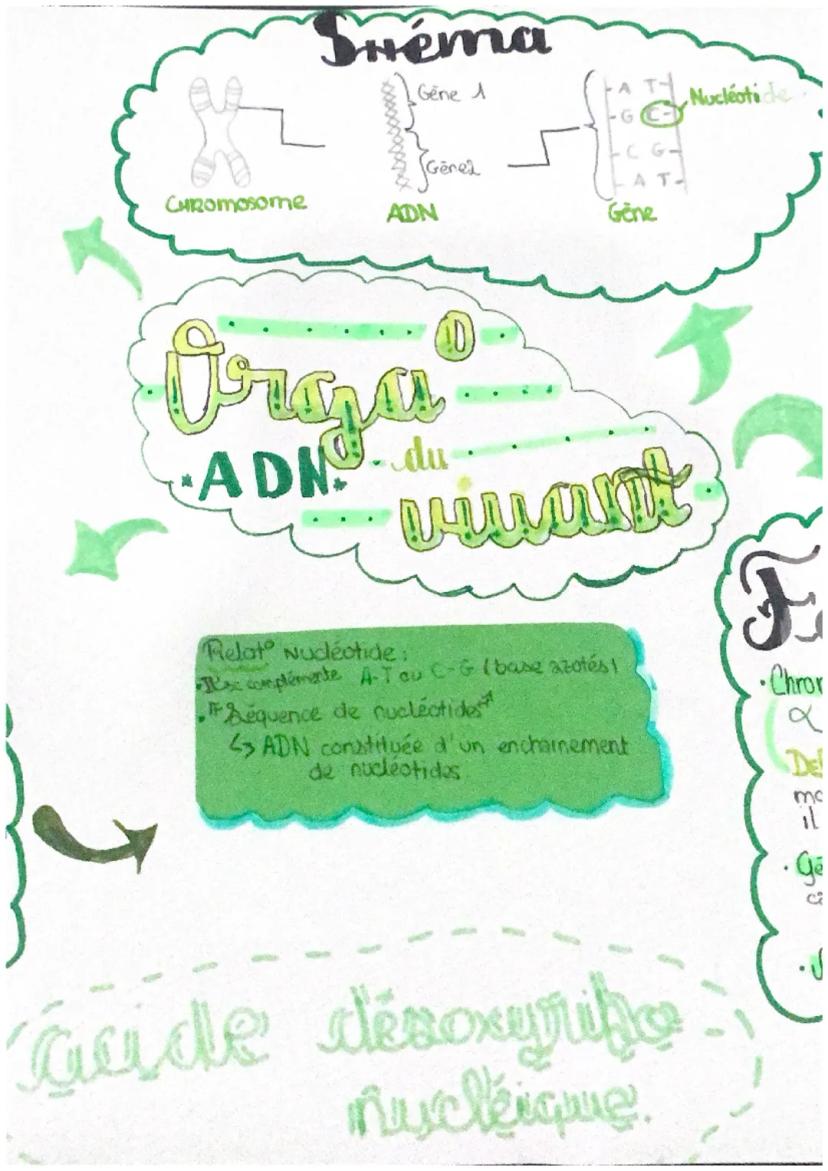 Shéma
Gène 1
Gène2
A T
G C
C G
A T
Nucléotide
CHROMOSOME
ADN
Gène
Orga°
*ADN*
du
vivant
Relat° Nucléotide :
• Ils se complémente A-T ou C-G (base azotés)
• Séquence de nucléotides
↳ ADN constituée d'un enchainement
de nucléotides
Chrom
α
Def
il
• Gè
acide désoxyribo -
nucléique.